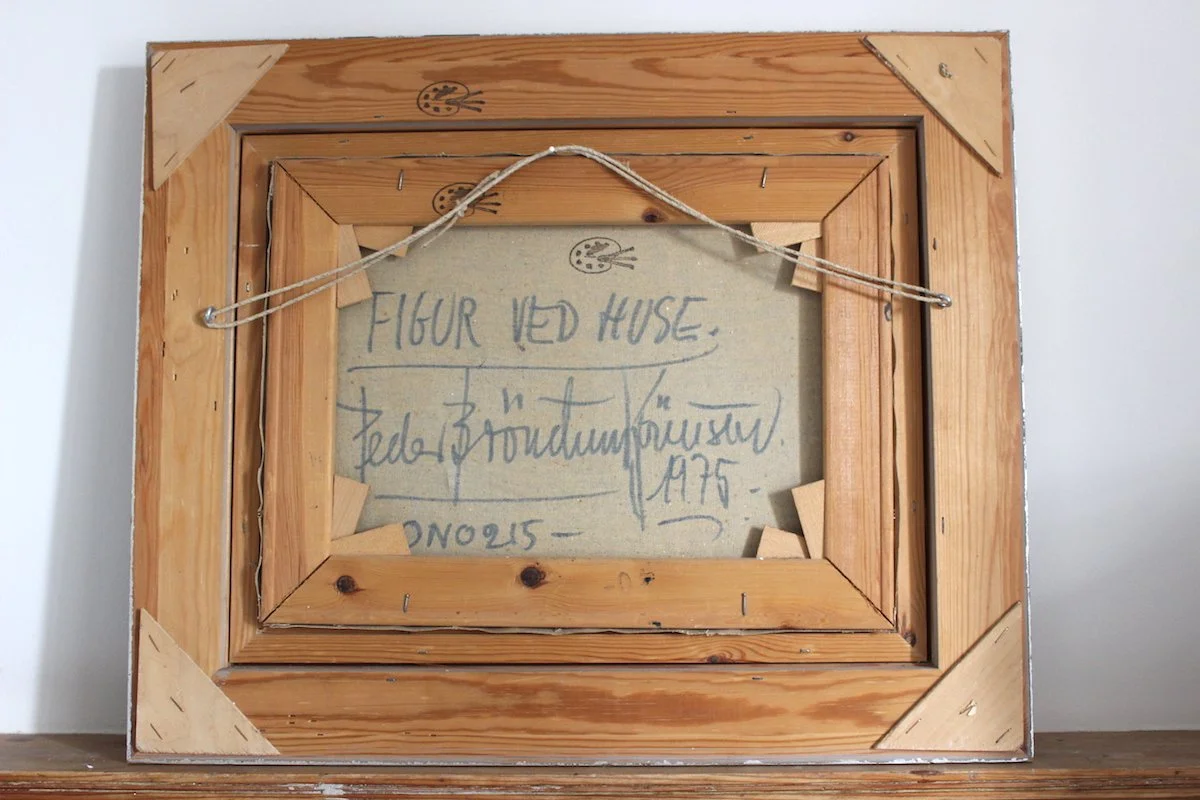 FIGUR VED HUSE.
Peder Bröndum Sörensen.
1975-
ONO215-